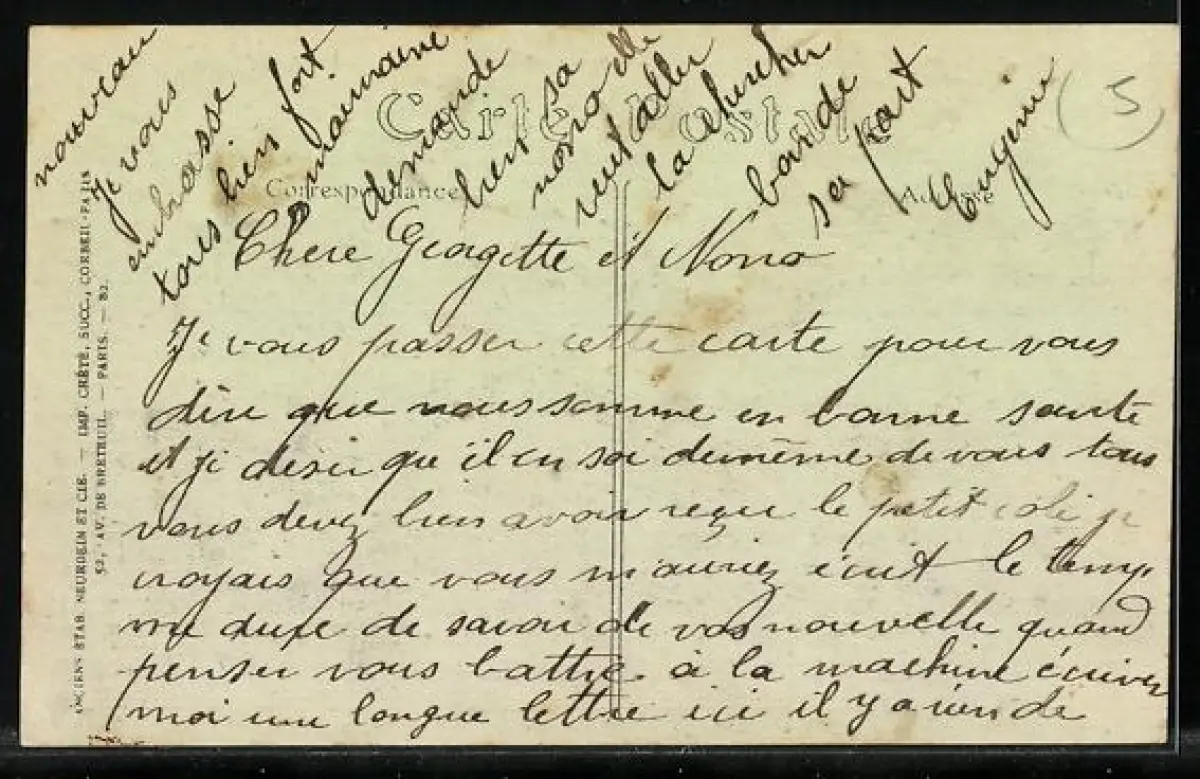 Carte Postale
Correspondance
Adresse
(5)
ANCIENS ETAB. NEURDEIN ET CIE. — IMP. CRÉTÉ, SUCC., CORBEIL-PARIS
52, AV. DE BRETEUIL. — PARIS. — 82.
Chere Georgette et Nono
Je vous passer cette carte pour vous
dire que nous somme en bonne sante
et je desir que il en soi de même de vous tous
vous devez bien avoir reçu le petit coli je
croyais que vous m'auriez écrit le temp
me dure de savoir de vos nouvelle quand
penser vous battre à la machine écrivez
moi une longue lettre ici il y a rien de
nouveau
Je vous
embrasse
tous bien fort
marraine
demande
bien sa
nono elle
veut aller
la chercher
bonde
sa part
Eugenie